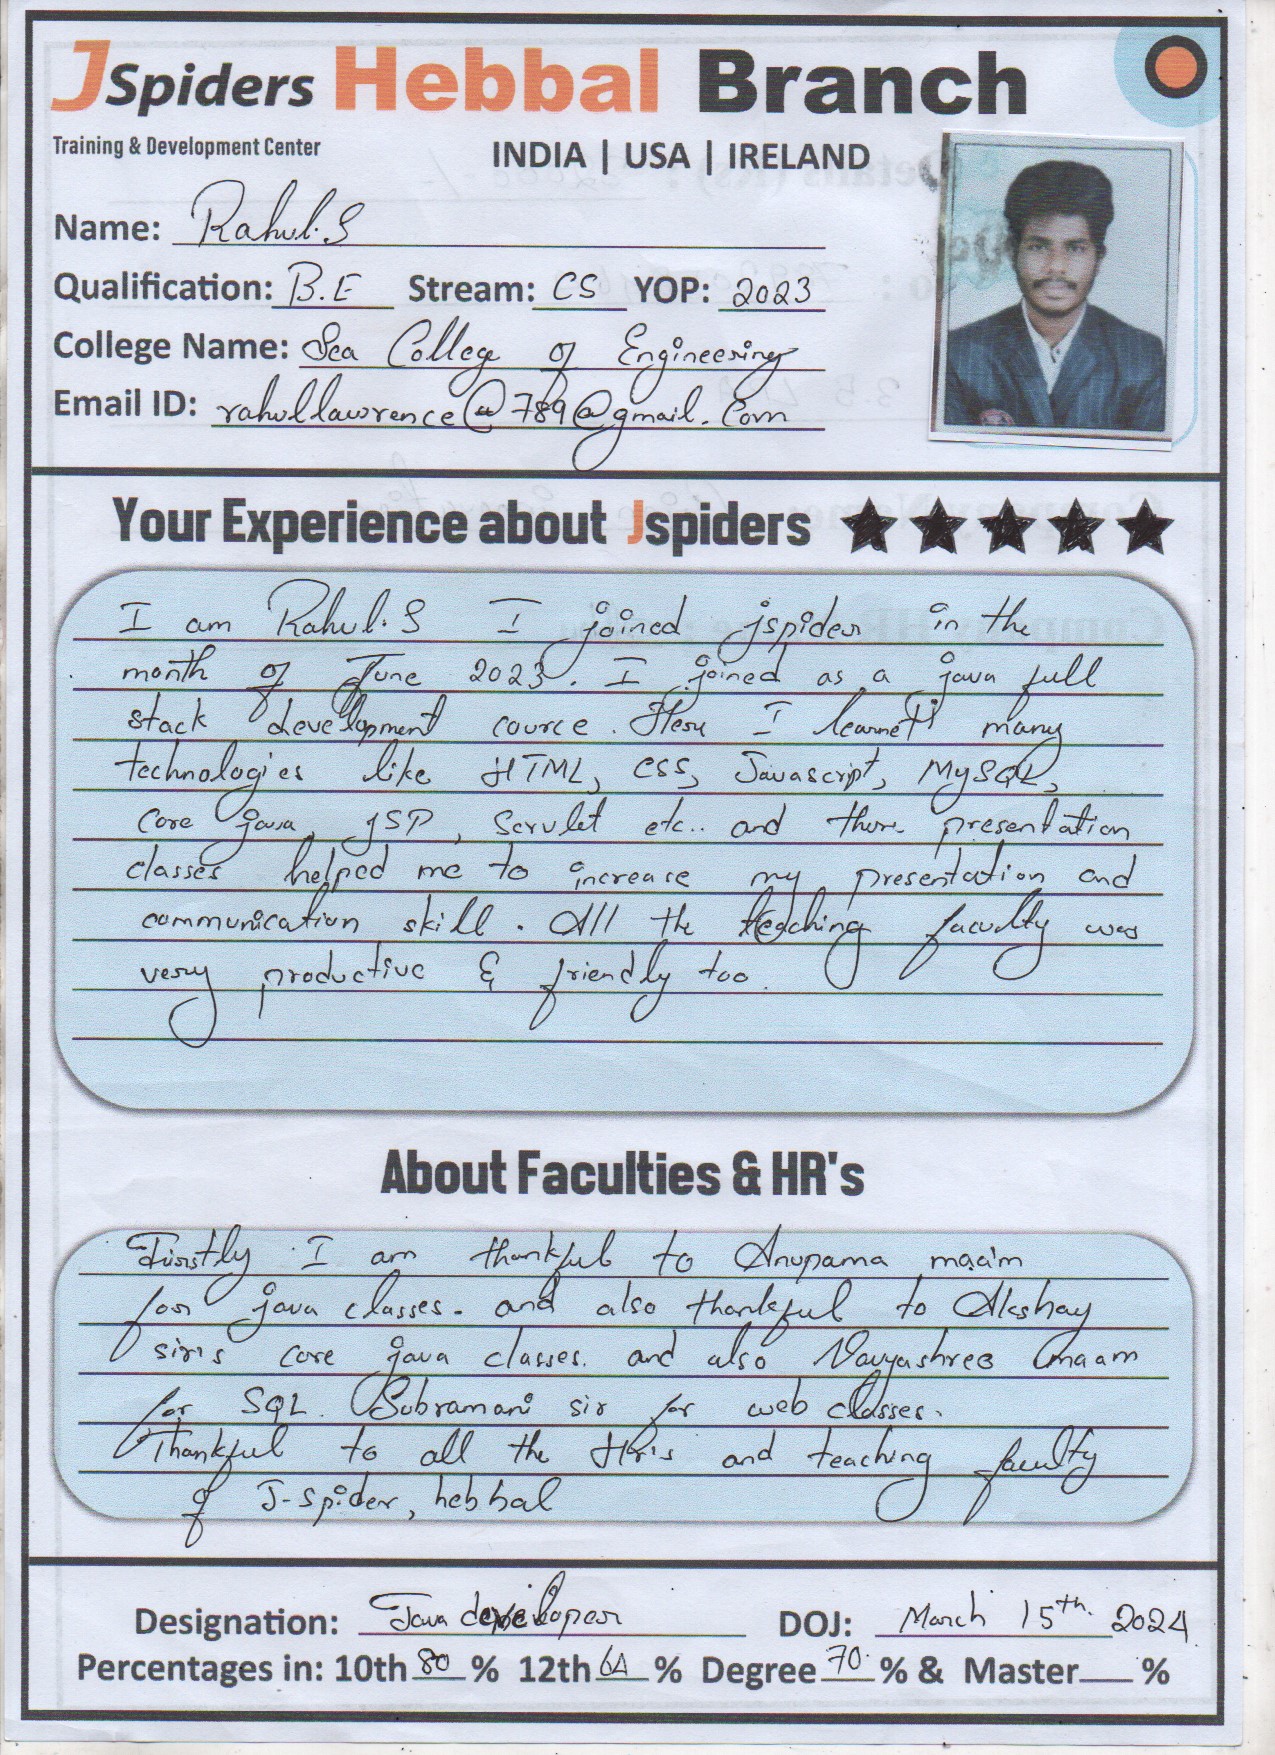 JSpiders Hebbal Branch
Training & Development Center
INDIA | USA | IRELAND
Name: Rahul.S
Qualification: B.E Stream: CS YOP: 2023
College Name: Sea College of Engineering
Email ID: rahullawrence@789@gmail.com
Your Experience about Jspiders
I am Rahul.S I joined jspider in the
month of June 2023. I joined as a java full
stack development cource. Here I learnet many
technologies like HTML, CSS, Javascript, MySQL,
Core java, JSP, Servlet etc.. and there presentation
classes helped me to increase my presentation and
communication skill. All the teaching faculty was
very productive & friendly too.
About Faculties & HR's
Firstly I am thankful to Anupama ma'am
for java classes. and also thankful to Akshay
sir's core java classes. and also Navyashree maam
for SQL. Subramani sir for web classes.
Thankful to all the Hr's and teaching faculty
of J-spider, hebbal
Designation: Java developer DOJ: March 15th 2024
Percentages in: 10th 80 % 12th 64 % Degree 70. % & Master %